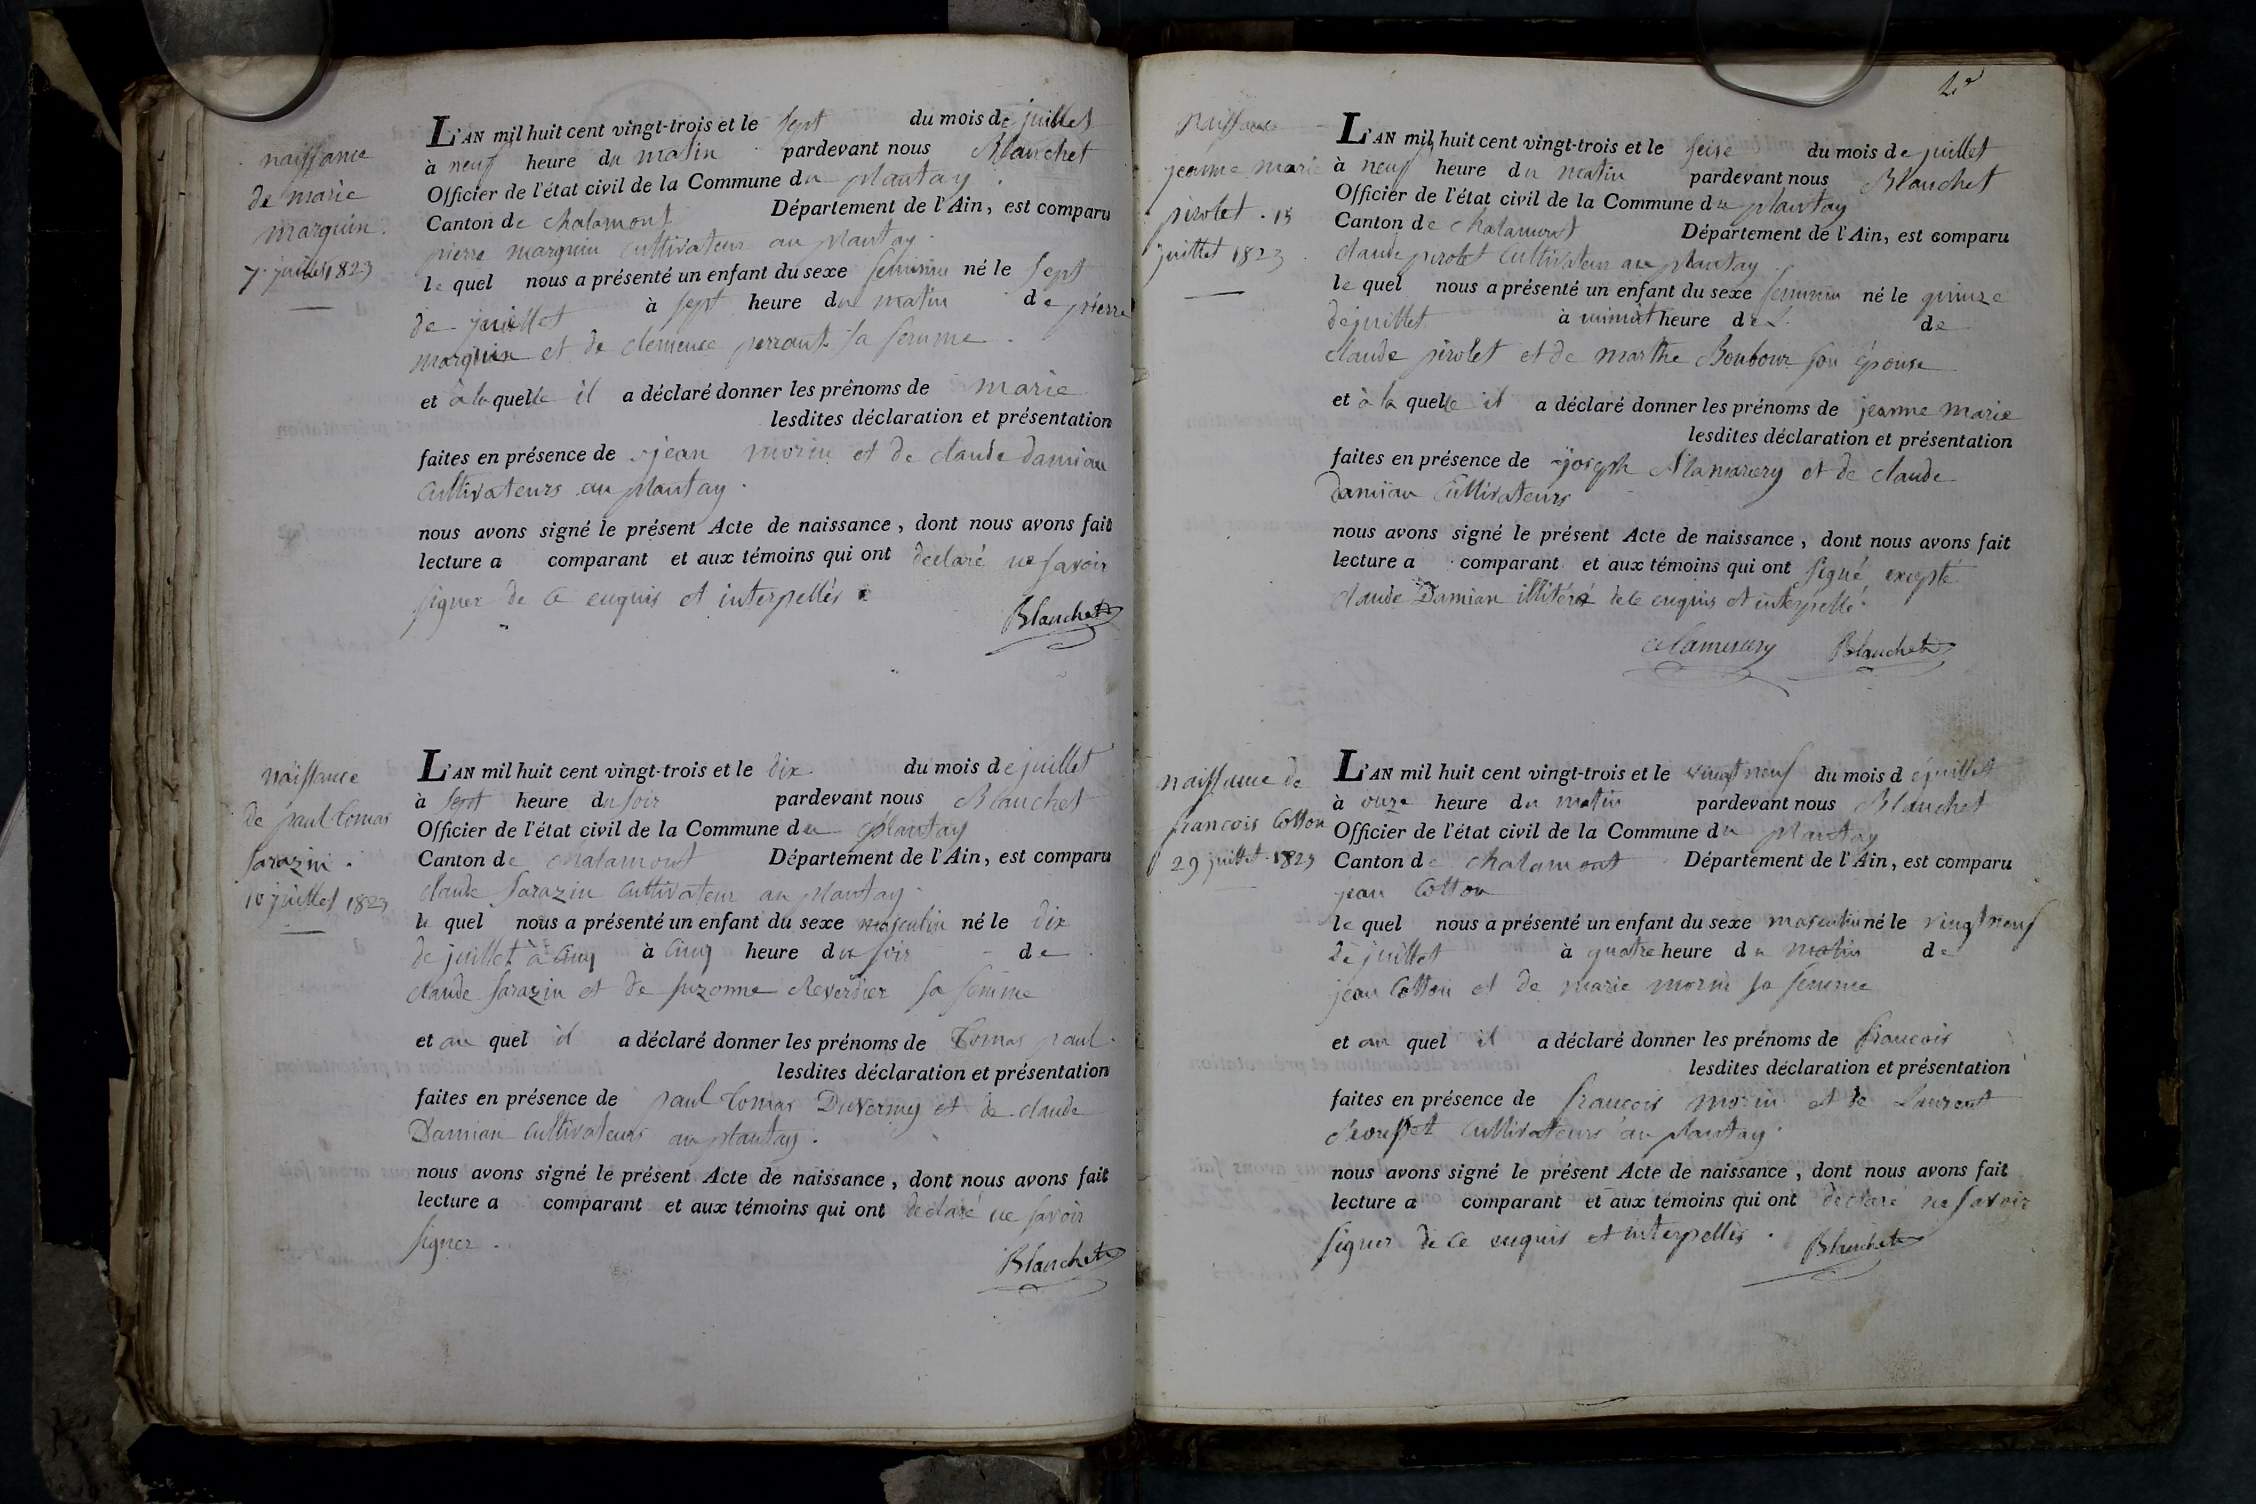 naissance
de marie
marquin.
7 juillet 1823
L'AN mil huit cent vingt-trois et le sept du mois de juillet
à neuf heure du matin pardevant nous Blanchet
Officier de l'état civil de la Commune du plantay.
Canton de chalamont Département de l'Ain, est comparu
pierre marquin cultivateur au plantay.
le quel nous a présenté un enfant du sexe feminin né le sept
de juillet à sept heure du matin de pierre
marquin et de clemence perrant sa femme.
et à la quelle il a déclaré donner les prénoms de marie
lesdites déclaration et présentation
faites en présence de jean morin et de claude damian
cultivateurs au plantay.
nous avons signé le présent Acte de naissance, dont nous avons fait
lecture a comparant et aux témoins qui ont declaré ne savoir
signer de ce enquis et interpellés
Blanchet
naissance
de paul tomas
sarazin.
10 juillet 1823
L'AN mil huit cent vingt-trois et le dix du mois de juillet
à sept heure du soir pardevant nous Blanchet
Officier de l'état civil de la Commune du plantay
Canton de chalamont Département de l'Ain, est comparu
claude sarazin cultivateur au plantay.
le quel nous a présenté un enfant du sexe masculin né le dix
de juillet à cinq à cinq heure du soir de
claude sarazin et de suzonne Reverdier sa femme
et au quel il a déclaré donner les prénoms de tomas paul.
lesdites déclaration et présentation
faites en présence de paul tomas Duvernay et de claude
Damian cultivateurs au plantay.
nous avons signé le présent Acte de naissance, dont nous avons fait
lecture a comparant et aux témoins qui ont declaré ne savoir
signer.
Blanchet
2e
naissance
jeanne marie
pirolet. 15
juillet 1823.
L'AN mil huit cent vingt-trois et le seise du mois de juillet
à neuf heure du matin pardevant nous Blanchet
Officier de l'état civil de la Commune du plantay
Canton de chalamont Département de l'Ain, est comparu
claude pirolet cultivateur au plantay.
le quel nous a présenté un enfant du sexe feminin né le quinze
de juillet à minuit heure de
claude pirolet et de marthe Boubour son épouse
et à la quelle il a déclaré donner les prénoms de jeanne marie
lesdites déclaration et présentation
faites en présence de joseph Alamercery et de claude
Damian cultivateurs
nous avons signé le présent Acte de naissance, dont nous avons fait
lecture a comparant et aux témoins qui ont signé excepté
claude Damian illitéré de ce enquis et interpellé.
alamercery Blanchet
naissance de
francois Cotton
29 juillet. 1823
L'AN mil huit cent vingt-trois et le vingt neuf du mois de juillet
à onze heure du matin pardevant nous Blanchet
Officier de l'état civil de la Commune du plantay
Canton de chalamont Département de l'Ain, est comparu
jean Cotton
le quel nous a présenté un enfant du sexe masculin né le vingt neuf
de juillet à quatre heure du matin de
jean Cotton et de marie morin sa femme
et au quel il a déclaré donner les prénoms de francois
lesdites déclaration et présentation
faites en présence de francois morin et de Laurent
cultivateurs au plantay.
nous avons signé le présent Acte de naissance, dont nous avons fait
lecture a comparant et aux témoins qui ont declaré ne savoir
signer de ce enquis et interpellés.
Blanchet